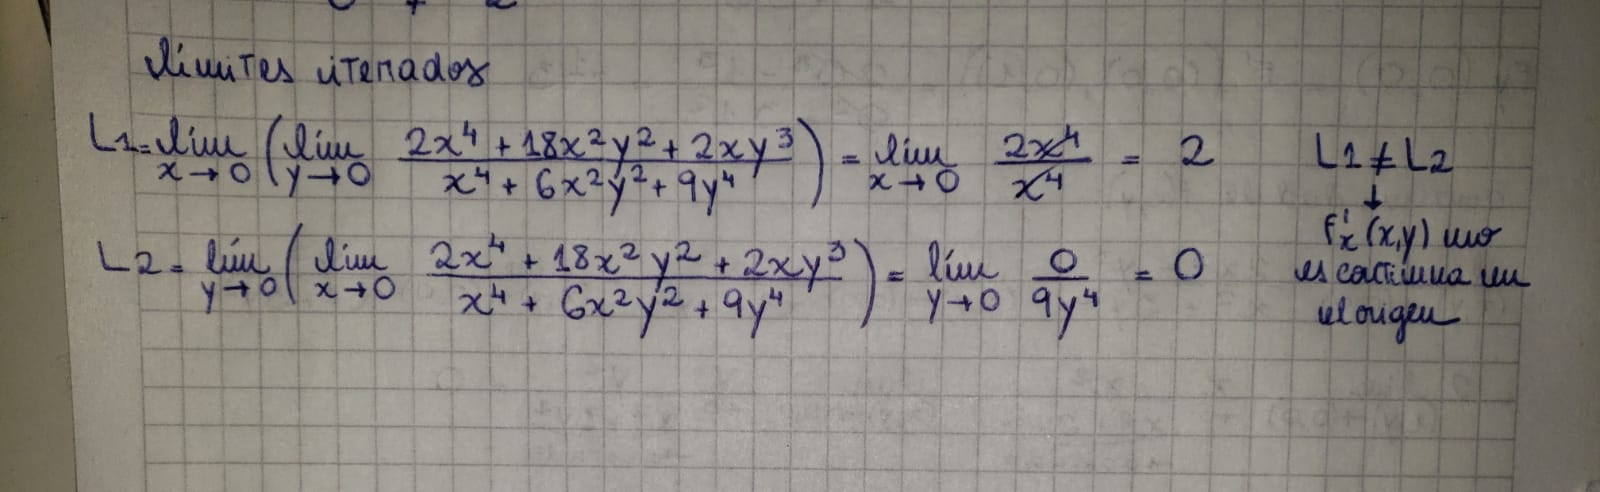 límites iterados
L1 = lím x→0 ( lím y→0 (2x⁴ + 18x²y² + 2xy³)/(x⁴ + 6x²y² + 9y⁴) ) = lím x→0 2x⁴/x⁴ = 2 L1 ≠ L2
↓
L2 = lím y→0 ( lím x→0 (2x⁴ + 18x²y² + 2xy³)/(x⁴ + 6x²y² + 9y⁴) ) = lím y→0 0/9y⁴ = 0 f'x (x,y) no
es continua en
el origen